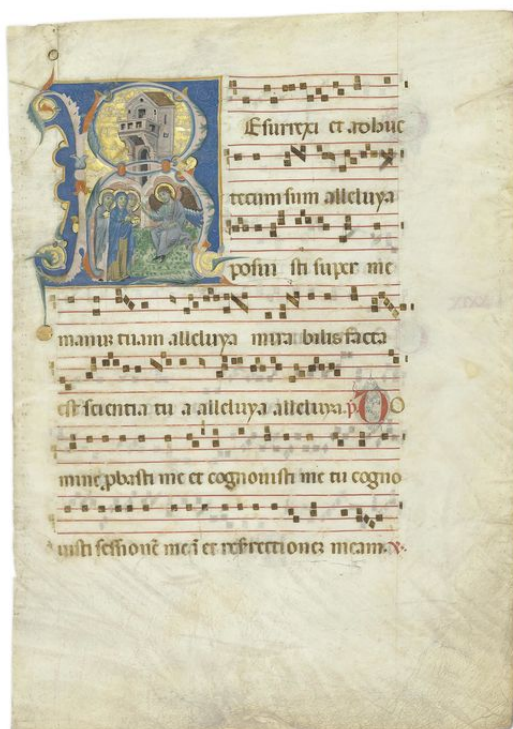 Resurrexi et adhuc
tecum sum alleluya
posui sti super me
manum tuam alleluya mira bilis facta
est scientia tu a alleluya alleluya. p̄s DO
mine ꝓbasti me et cognouisti me tu cogno
uisti sessionē meā et resurrectionem meam. V.